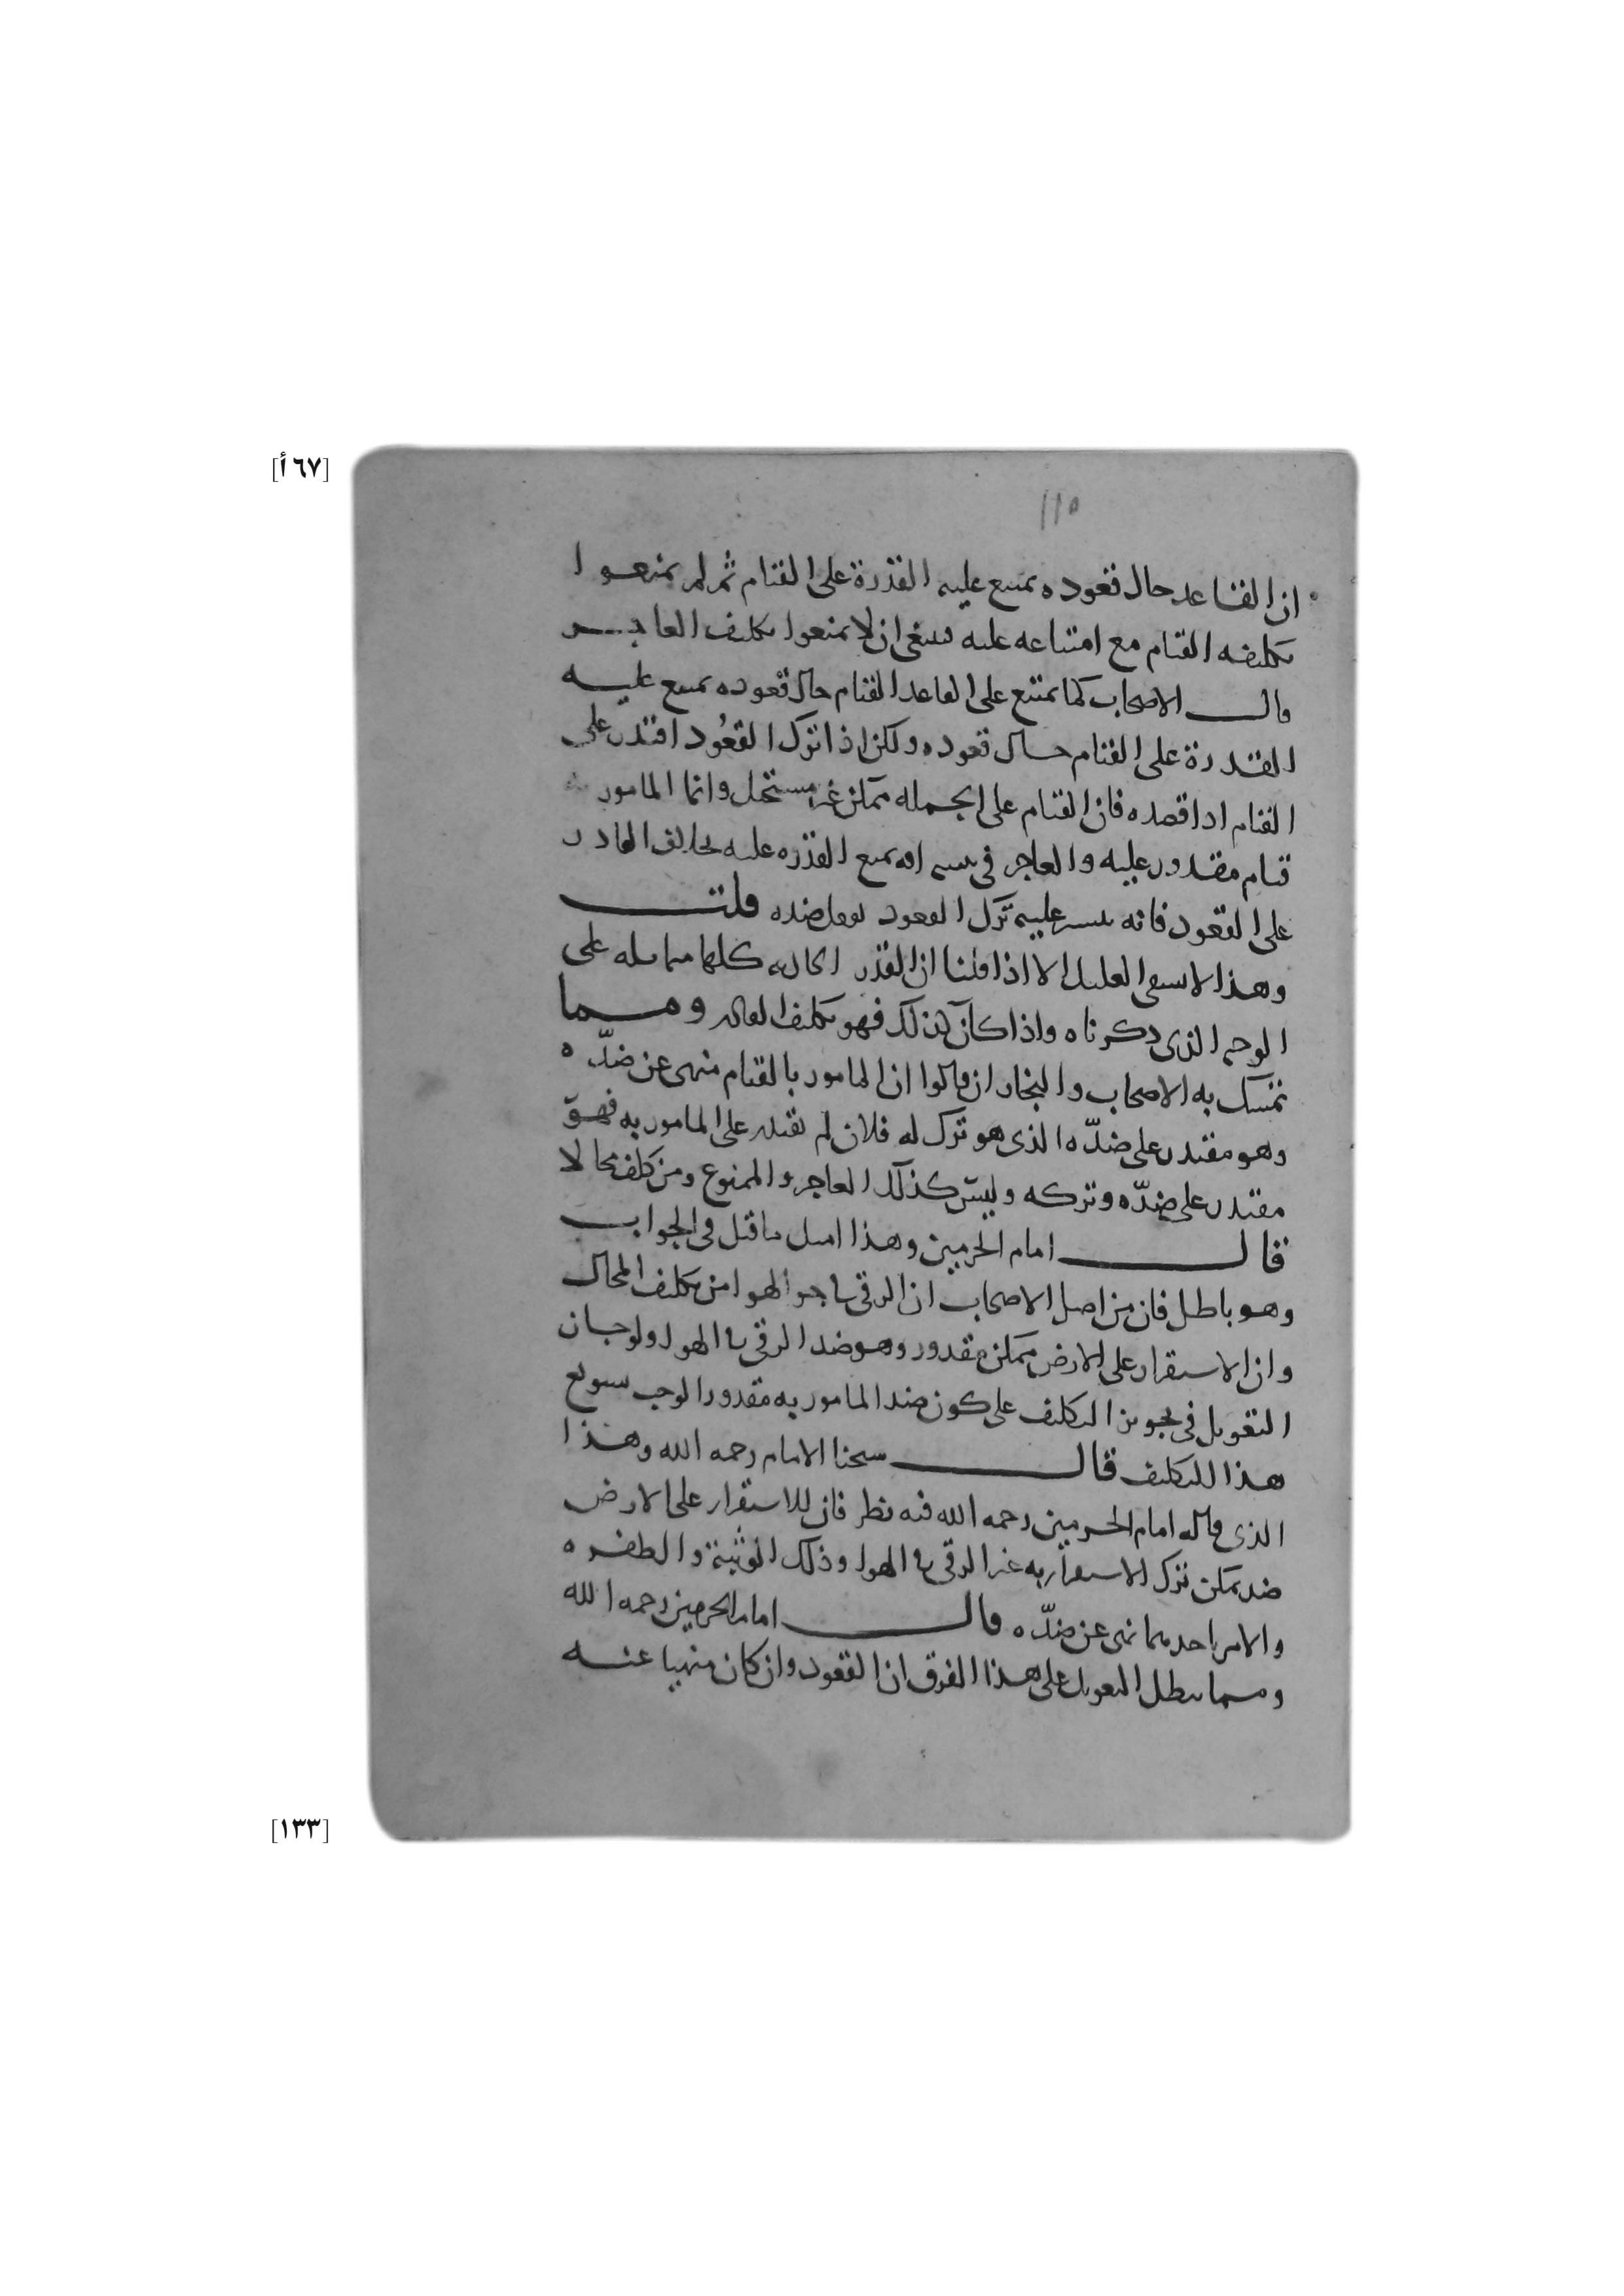 [٦٧ أ]
١١٥
ان القاعد حال قعوده يمتنع عليه القدرة على القيام ثم لم يمنعوا
تكليفه القيام مع امتناعه عليه فينبغي ان لا يمنعوا تكليف العاجز
قال الاصحاب كما يمتنع على القاعد القيام حال قعوده يمتنع عليه
القدرة على القيام حال قعوده ولكن اذا ترك القعُود اقتدر على
القيام اذا قصده فان القيام على الجملة ممكن غير مستحيل وانما المامور به
قيام مقدور عليه والعاجز في امتناع القدره عليه بخلاف القادر
على القعود فانه يتيسر عليه ترك القعود بفعل ضده قلت
وهذا لا يستقل الا اذا قلنا ان القدر كلها متماثله على
الوجه الذي ذكرناه واذا كان كذلك فهو تكليف ومما
تمسك به الاصحاب والنجار ان قالوا ان المامور بالقيام منهى عن ضدّه
وهو مقتدر على ضدّه الذي هو ترك له فلان لم يقتدر على المامور به فهو
مقتدر على ضدّه وتركه وليس كذلك العاجز والممنوع ومن كلف محالا
قال امام الحرمين وهذا امثل ما قيل في الجواب
وهو باطل فان من اصل الاصحاب ان الرقي في جو الهوا من تكليف المحال
وان الاستقرار على الارض ممكن مقدور وهو ضد الرقي في الهوا ولو جاز
التعويل في تجويز التكليف على كون ضد المامور به مقدورا لوجب تسويغ
هذا التكليف قال شيخنا الامام رحمه الله وهذا
الذي قاله امام الحرمين رحمه الله فيه نظر فان للاستقرار على الارض
ضد يمكن ترك الاستقرار به غير الرقي في الهوا وذلك الوثبة والطفره
والامر باحدهما نهى عن ضدّه قال امام الحرمين رحمه الله
ومما يبطل التعويل على هذا الفرق ان القعود وان كان منهيا عنه
[١٣٣]